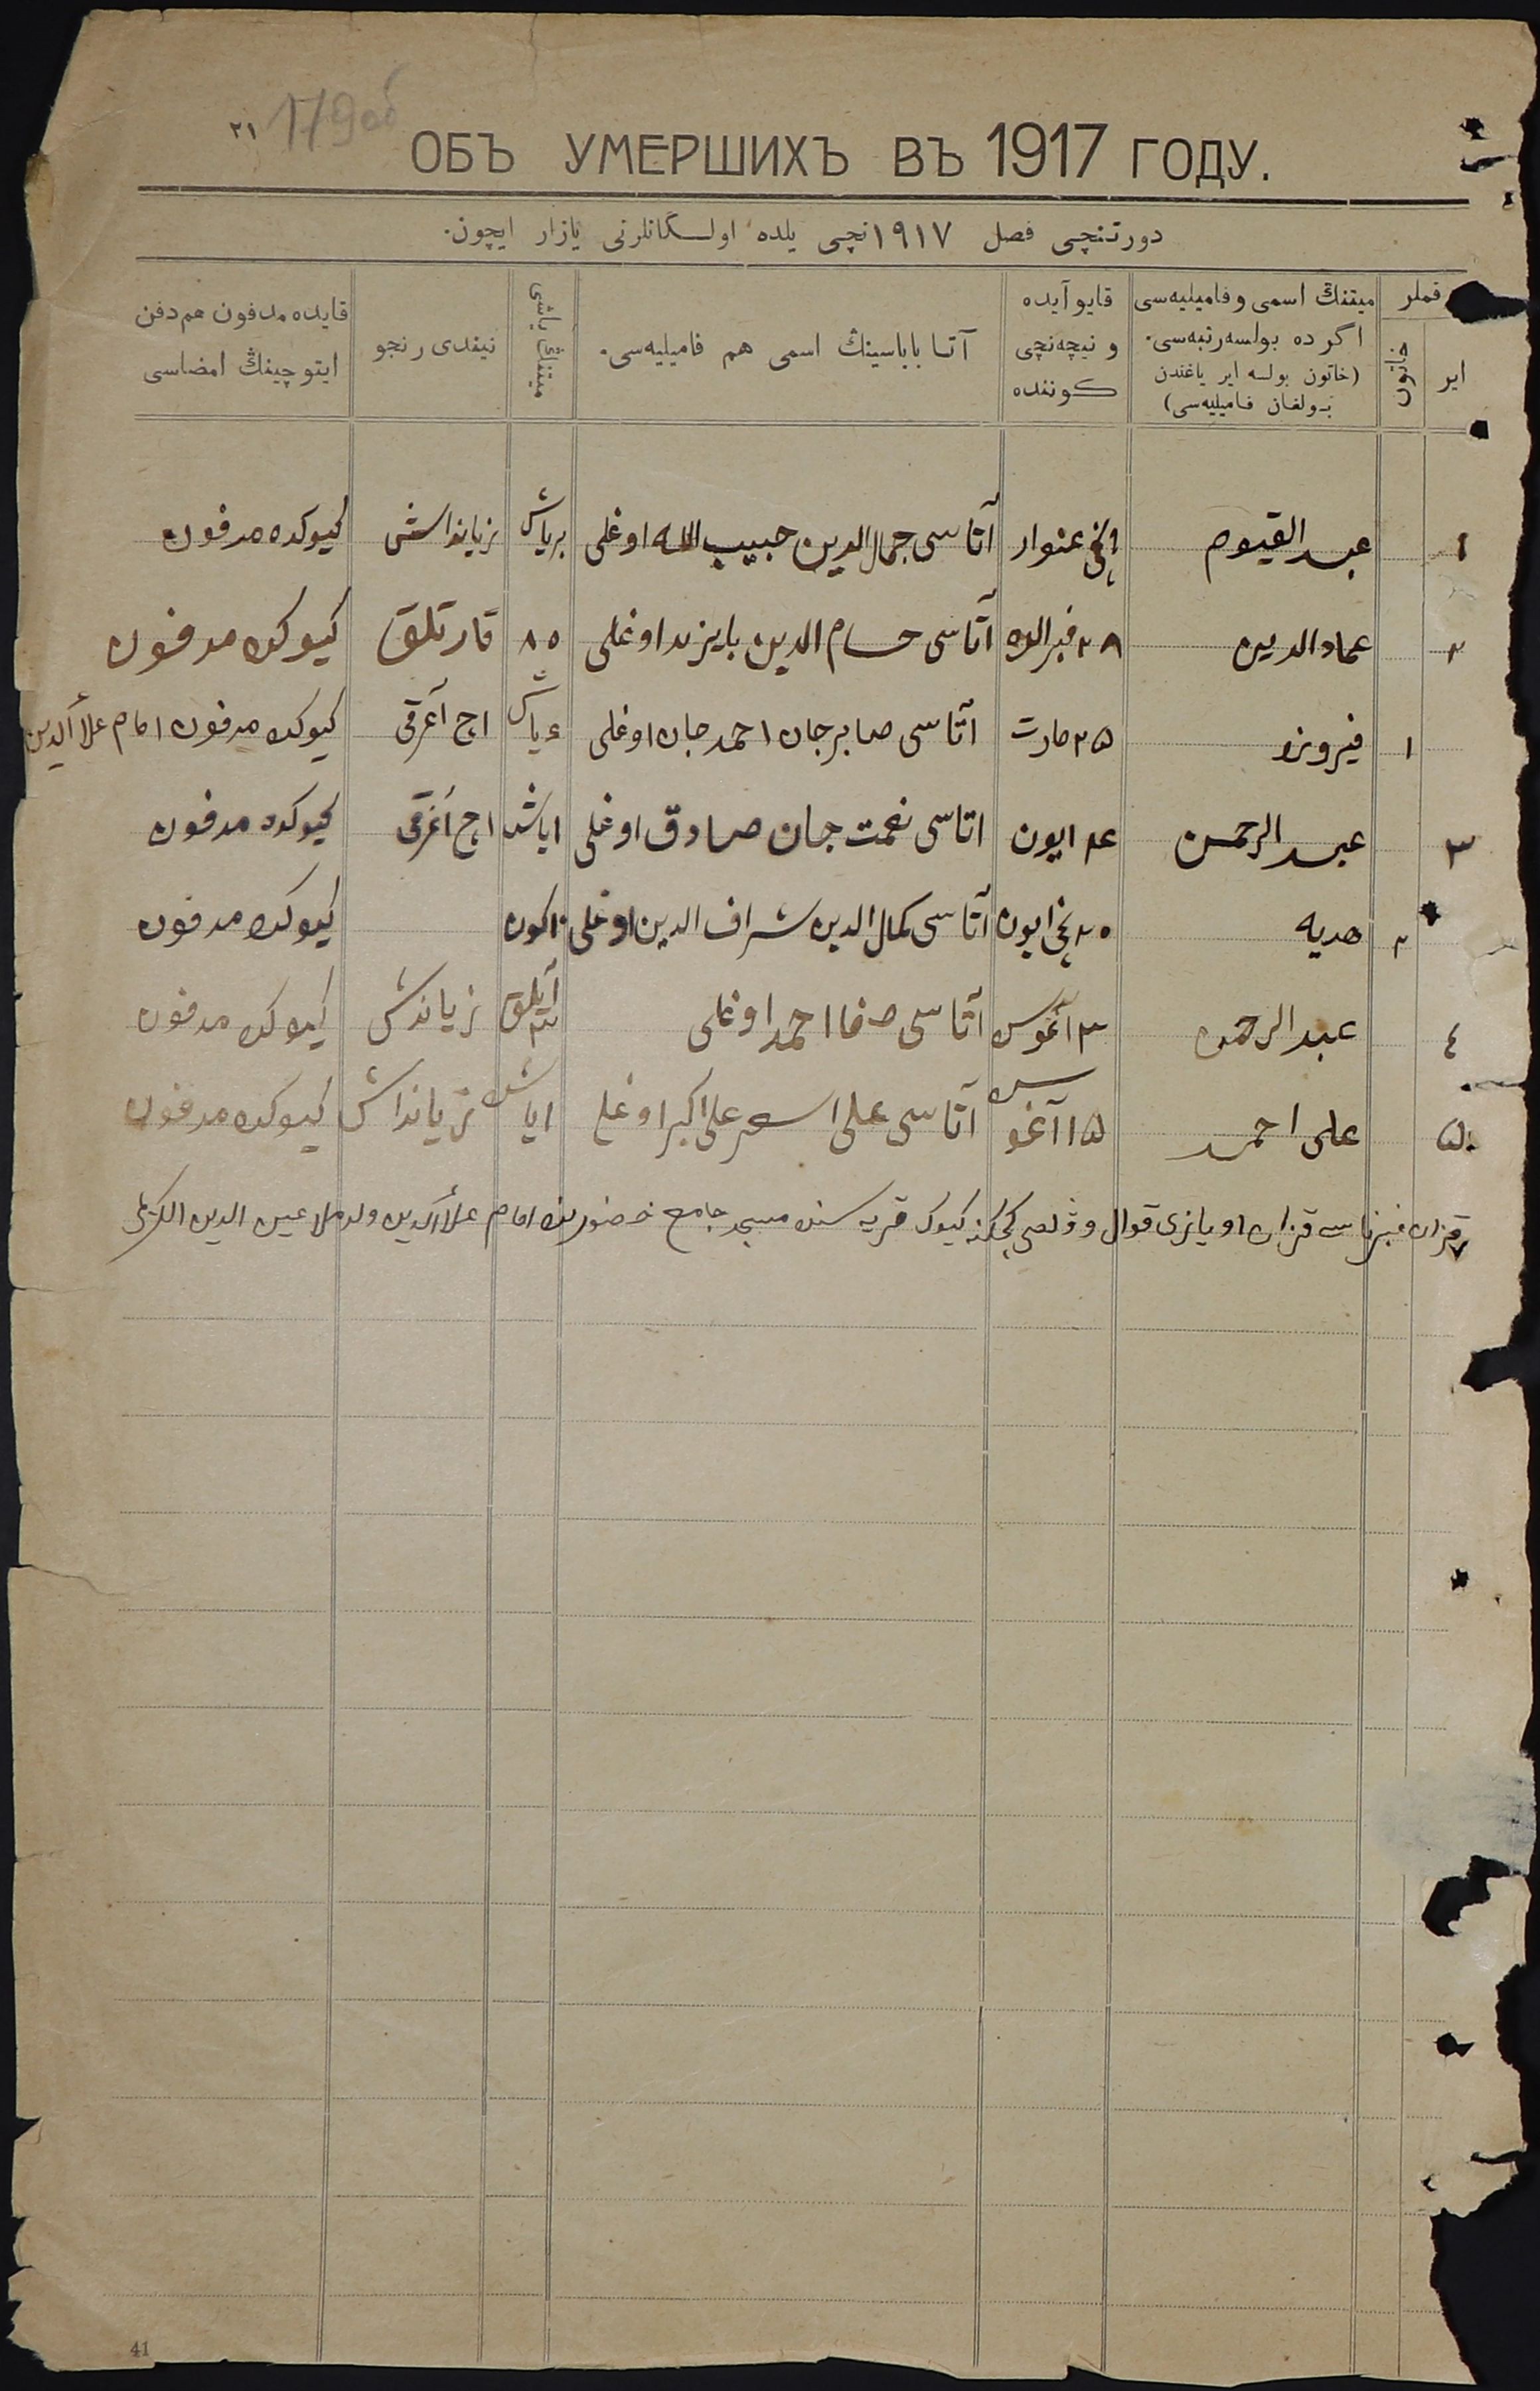 ٢١ 179об
ОБЪ УМЕРШИХЪ ВЪ 1917 ГОДУ.
دورتنچی فصل ١٩١٧نچی یلده اولسگانلرنی یازار ایچون.
نملر
ایر
خاتون
میتنڭ اسمی و فامیلیه‌سی
اگر ده بولسه رتبه‌سی.
(خاتون بولسه ایر یاغندن
بولغان فامیلیه‌سی)
قایو آیده
و نیچه‌نچی
کوننده
آتا باباسینڭ اسمی هم فامیلیه‌سی.
میتنڭ یاشی
نیندی رنجو
قایده مدفون هم دفن
ایتوچینڭ امضاسی
١ عبد القیوم غنوار آتاسی جمال الدین حبیب الله اوغلی بر یاش زیانداش کیوکده مدفون
٢ عماد الدین ٢٨ فبرال آتاسی حسام الدین بایزید اوغلی ٨٥ قارتلق کیوکده مدفون
١ فیروزه ٢٥ مارت آتاسی صابرجان احمدجان اوغلی ٤ یاش اچ آغرقی کیوکده مدفون امام علأ الدین
٣ عبد الرحمن ٢٤ ایون اتاسی نعمت جان صادق اوغلی ١ یاش اچ آغرقی کیوکده مدفون
٢ هدیه ٢٠ نچی ایون آتاسی کمال الدین شراف الدین اوغلی ٢٠ کون کیوکده مدفون
٤ عبد الرحمن ٣ آغوس آتاسی صفا احمد اوغلی ٣ آیلق زیاندش کیوکده مدفون
٥ علی احمد ١٥ آغوس آتاسی علی اصغر علی اکبر اوغلی ١ یاش زیانداش کیوکده مدفون
قزان اویازی قوال کیوک قریه سنده مسجد جامع حضورنده امام علأ الدین ولد ملا عین الدین
41